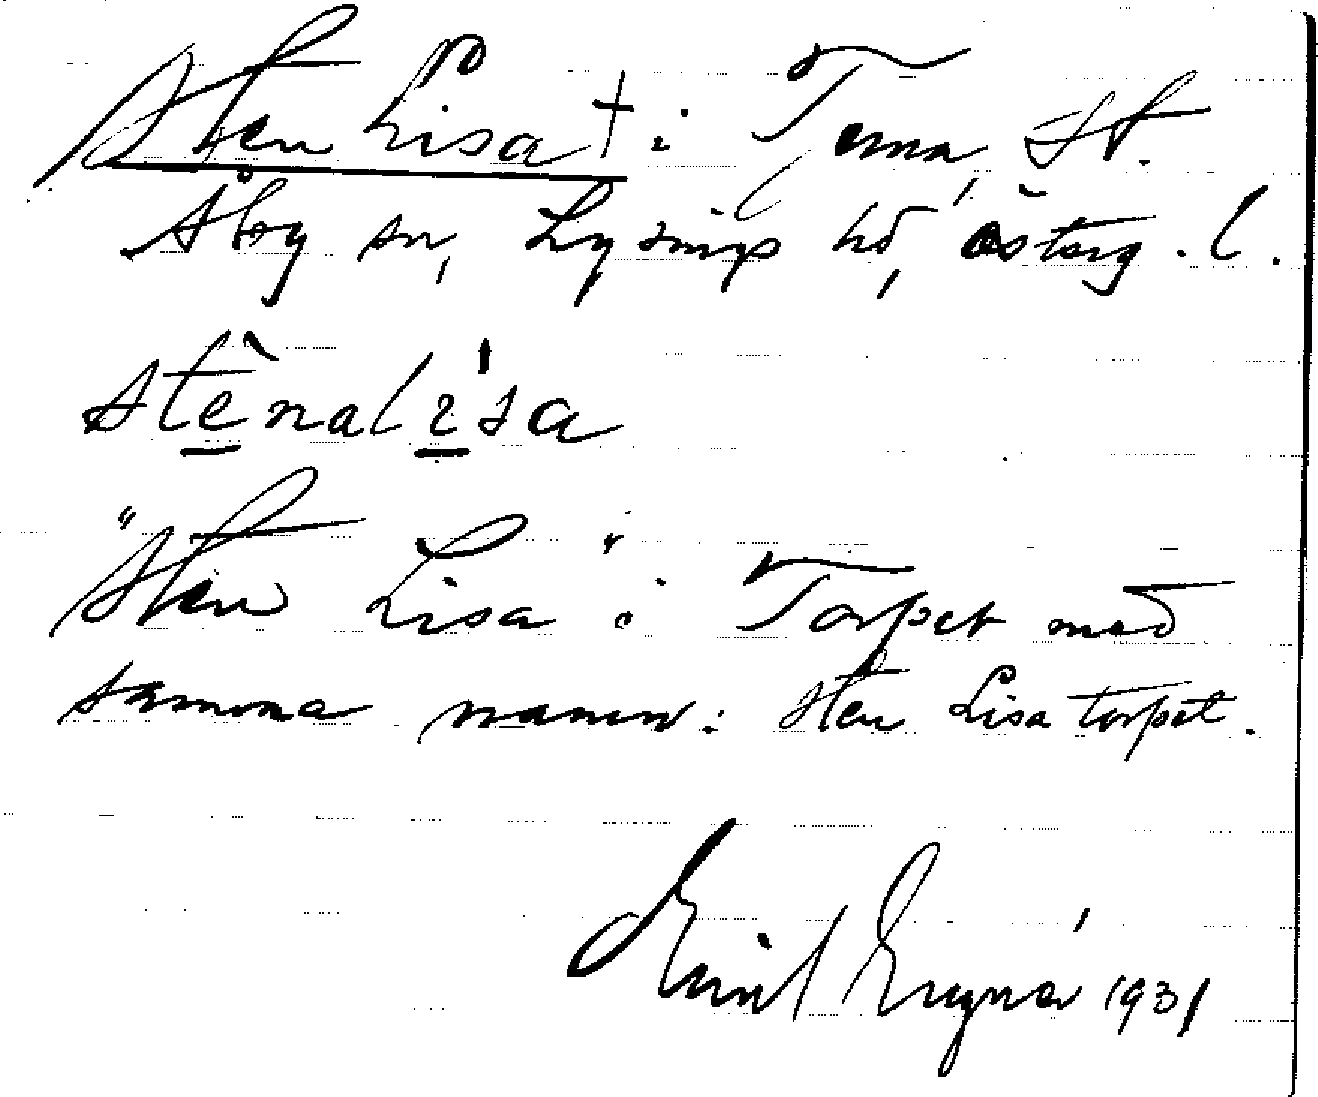 Sten Lisa † : Tema, St.
Åby sn, Lysings hd, Österg. l.
stènalí̀sa
"Sten Lisa" : Torpet med
samma namn: Sten Lisa torpet.
Emil 1931